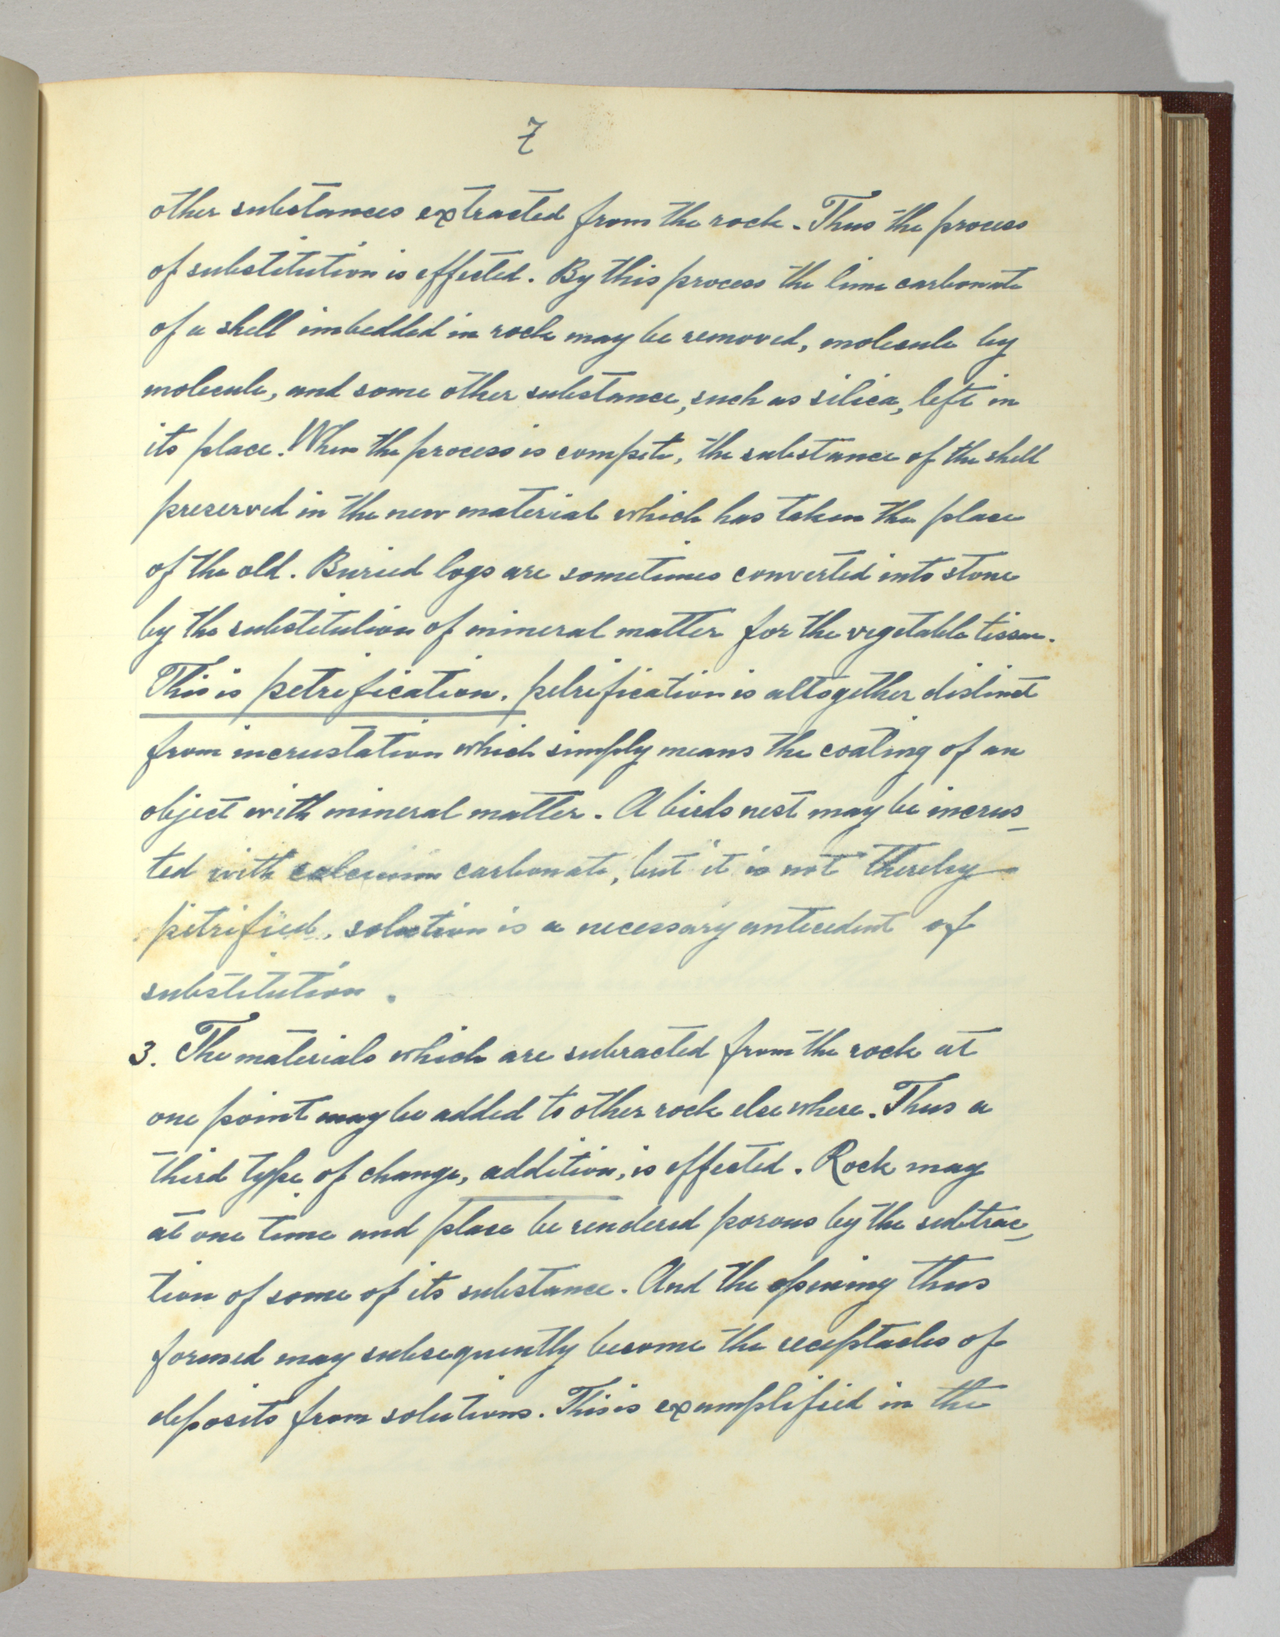 7
other substances extracted from the rock. Thus the process
of substitution is effected. By this process the lime carbonate
of a shell imbedded in rock may be removed, molecule by
molecule, and some other substance, such as silica, left in
its place. When the process is compete, the substance of the shell
preserved in the new material which has taken the place
of the old. Buried logs are sometimes converted into stone
by the substitution of mineral matter for the vegetable tissue.
This is petrification. petrification is altogether distinct
from incrustation which simply means the coating of an
object with mineral matter. A birds nest may be incrus-
ted with calcium carbonate, but it is not thereby
petrified. solution is a necessary antecedent of
substitution.
3. The materials which are subracted from the rock at
one point may be added to other rock elsewhere. Thus a
third type of change, addition, is effected. Rock may
at one time and place be rendered porous by the subtrac-
tion of some of its substance. And the opening thus
formed may subsequently become the receptacles of
deposits from solutions. This is exemplified in the